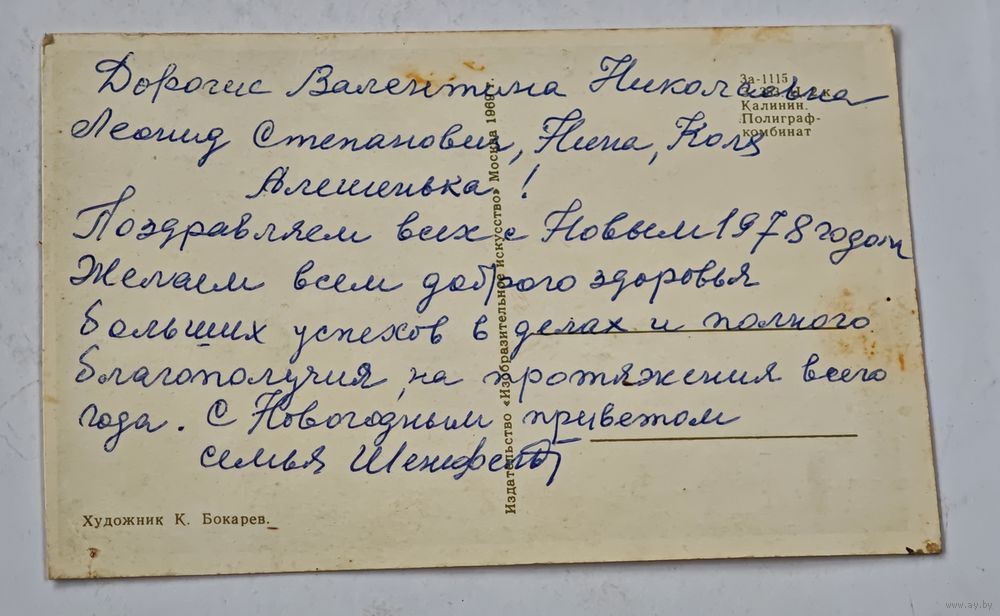 Дорогие Валентина Николаевна
Леонид Степанович, Нина, Коля
Алешенька!
Поздравляем всех с Новым 1978 годом
Желаем всем доброго здоровья
больших успехов в делах и полного
благополучия на протяжения всего
года. С Новогодным приветом
семья
За-1115
Калинин.
Полиграф-
комбинат
Издательство «Изобразительное искусство» Москва 1969
Художник К. Бокарев.
www.ay.by